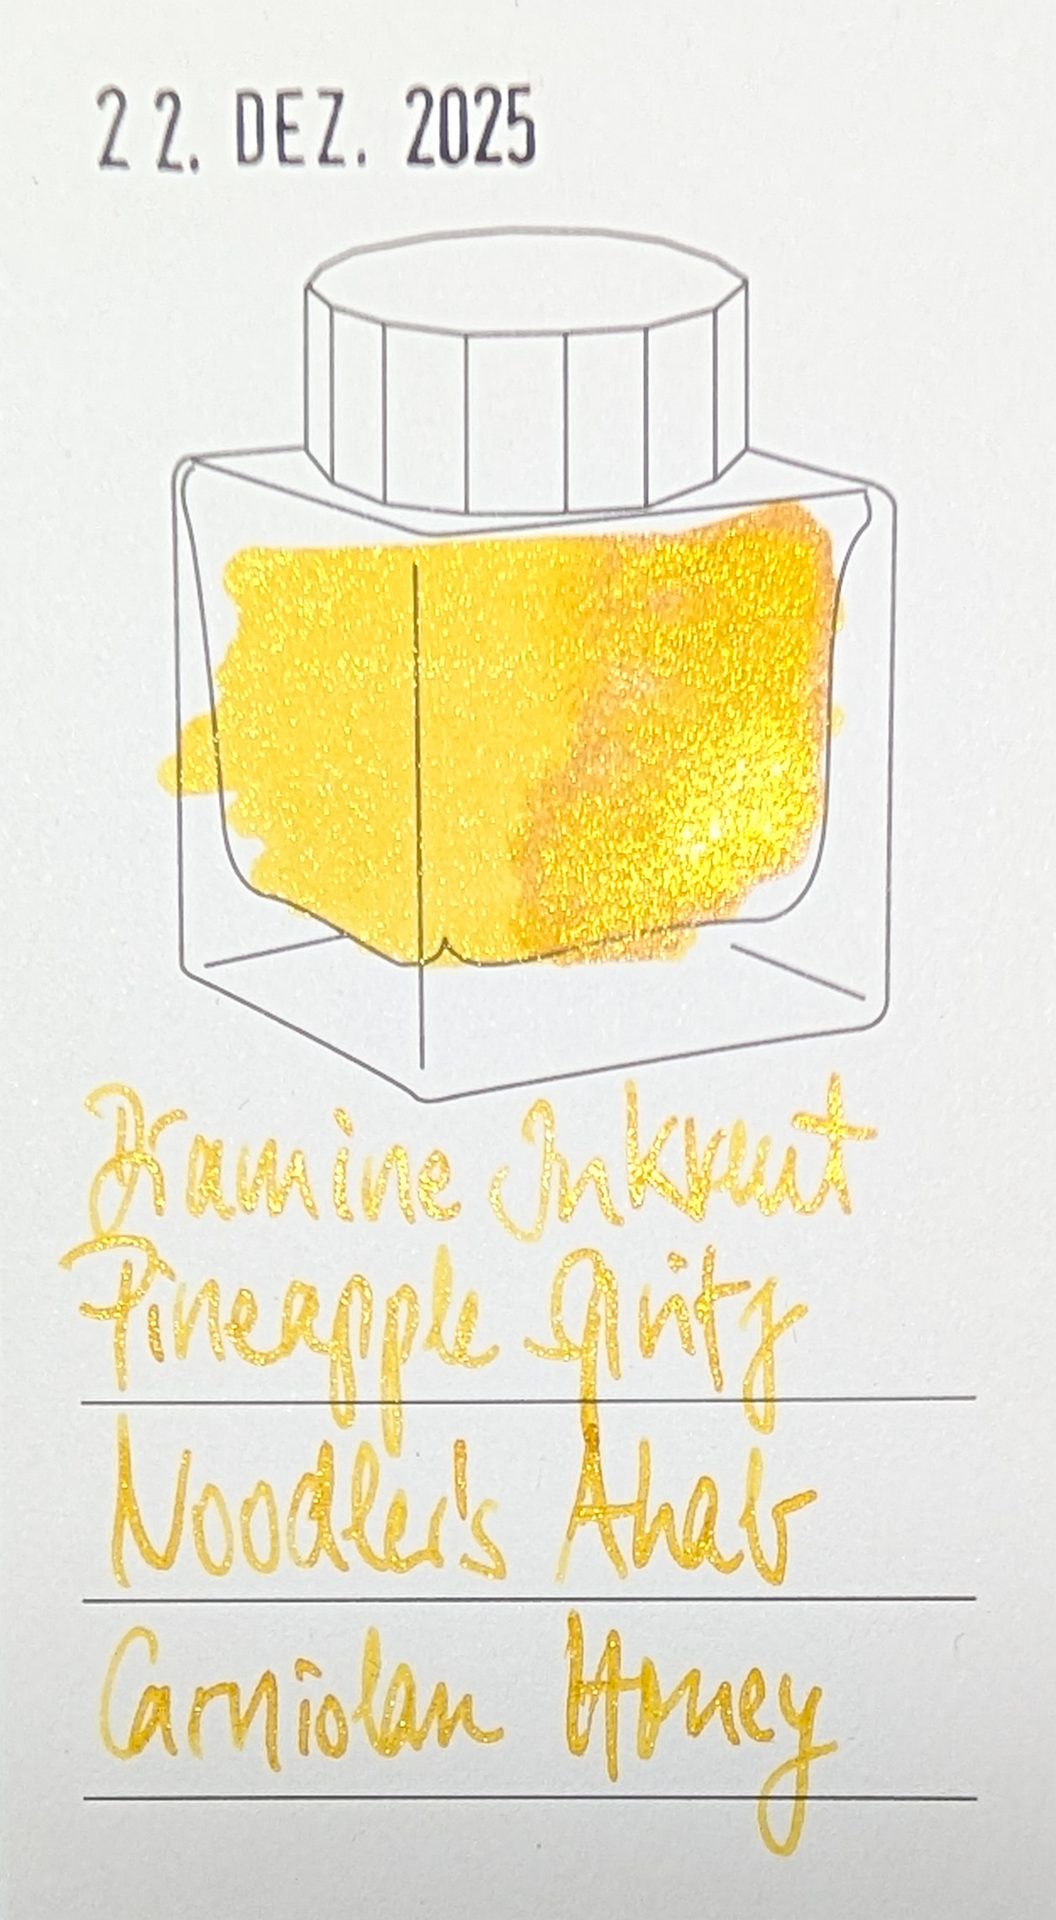 22. DEZ. 2025
Diamine Inkvent
Pineapple Ritz
Noodler's Ahab
Carniolan Honey